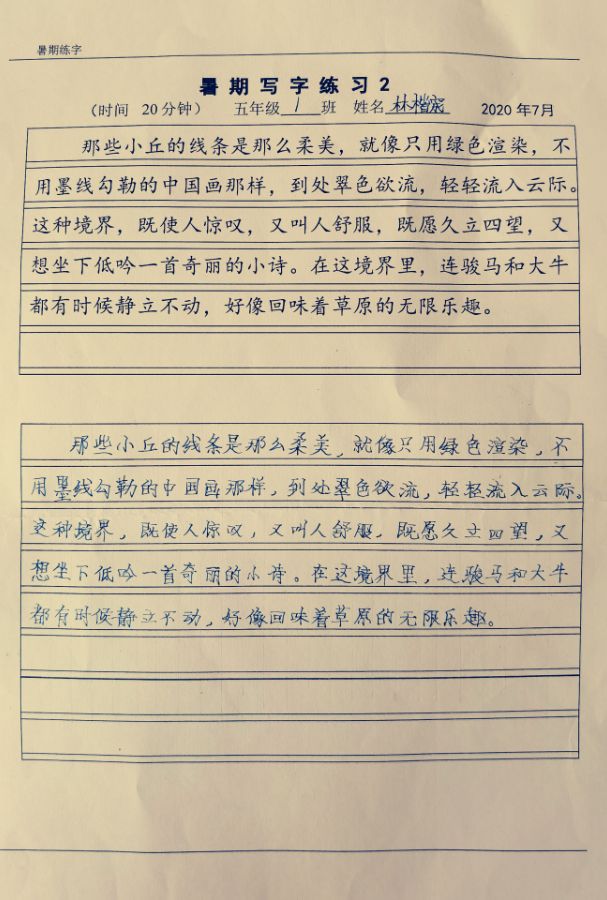 暑期练字
暑期写字练习2
（时间 20分钟） 五年级 1 班 姓名 林楷宸 2020年7月
那些小丘的线条是那么柔美，就像只用绿色渲染，不
用墨线勾勒的中国画那样，到处翠色欲流，轻轻流入云际。
这种境界，既使人惊叹，又叫人舒服，既愿久立四望，又
想坐下低吟一首奇丽的小诗。在这境界里，连骏马和大牛
都有时候静立不动，好像回味着草原的无限乐趣。
那些小丘的线条是那么柔美，就像只用绿色渲染，不
用墨线勾勒的中国画那样，到处翠色欲流，轻轻流入云际。
这种境界，既使人惊叹，又叫人舒服，既愿久立四望，又
想坐下低吟一首奇丽的小诗。在这境界里，连骏马和大牛
都有时候静立不动，好像回味着草原的无限乐趣。